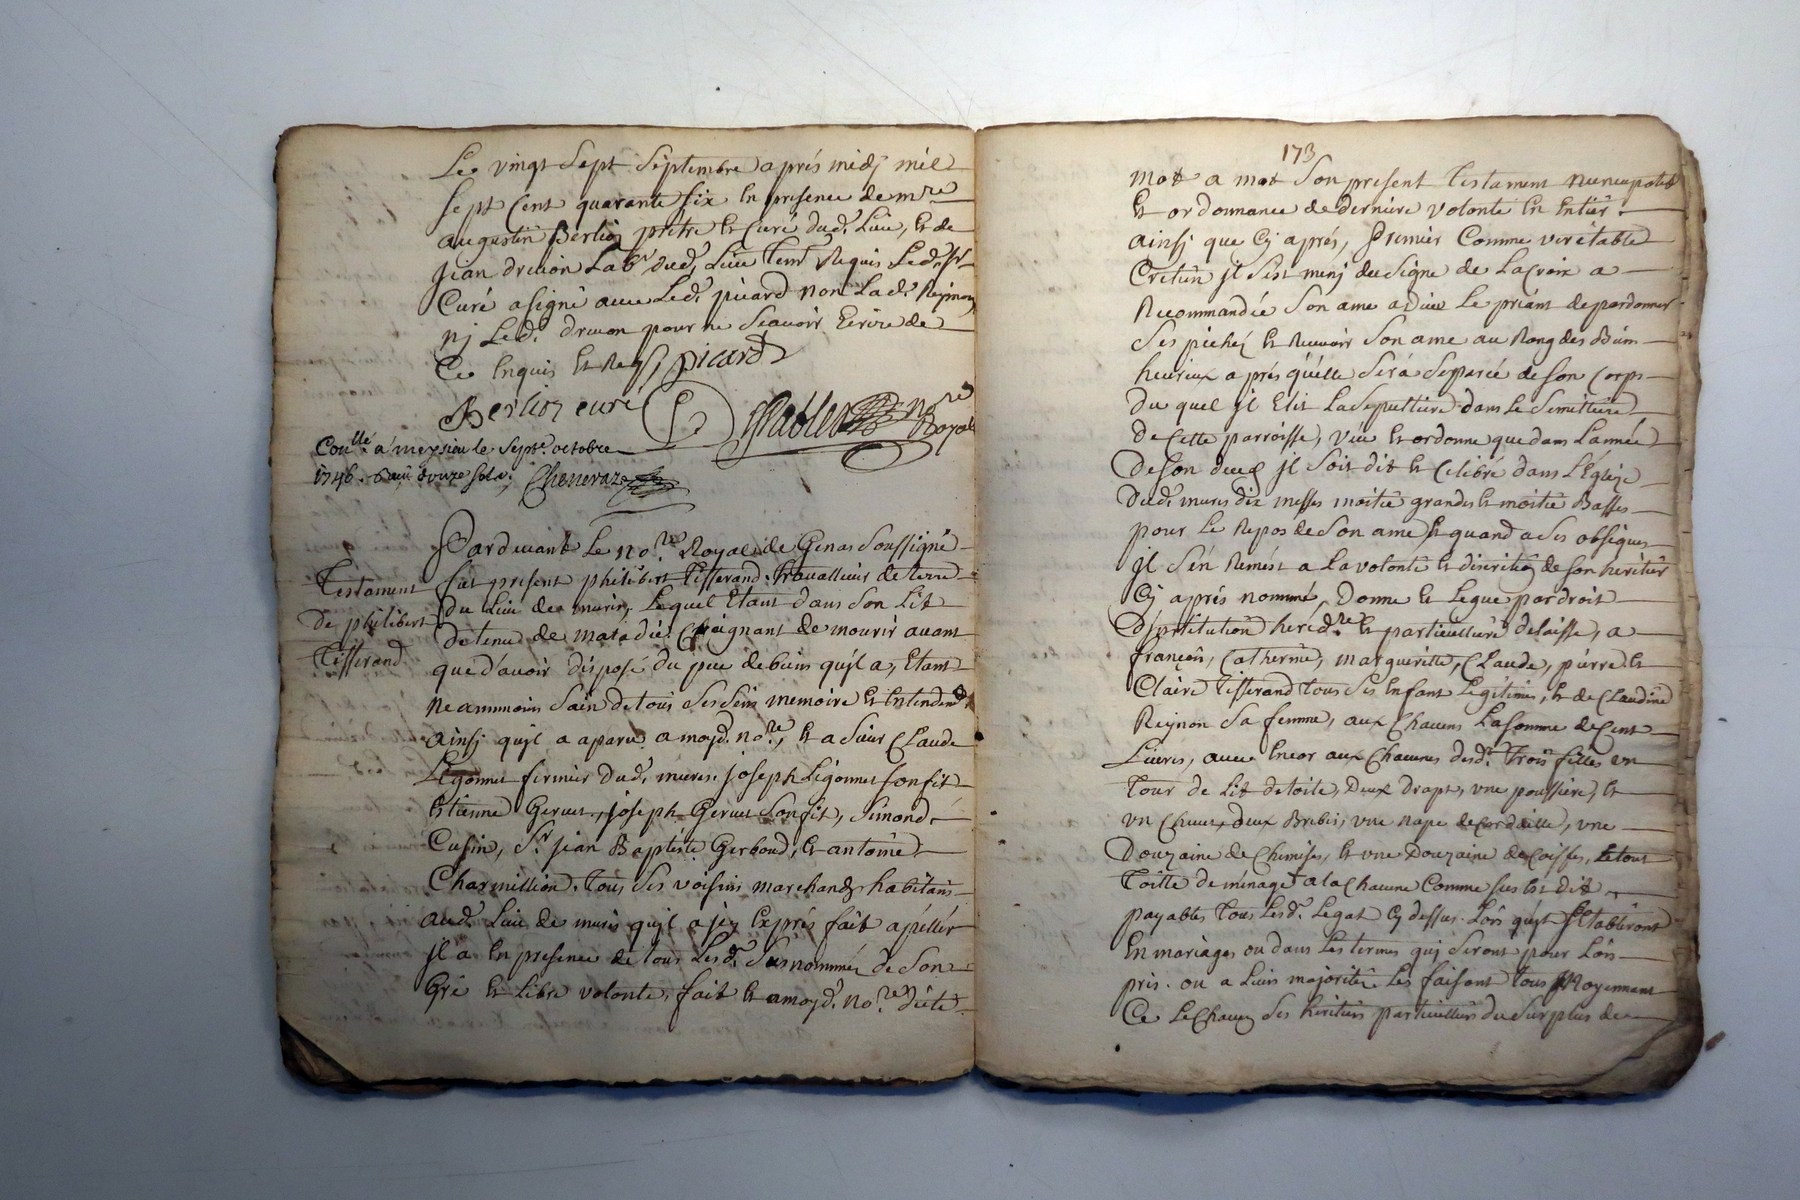 Le vingt Sept Septembre aprés midj mil
Sept Cent quarante Six En presence de mre
augustin Berlioz prêtre Et Curé dud. Lieu, Et de
Jean drevon Labr dud. Lieu Temr Requis Led. Sr
Curé a signé avec Led. picard non Lad. Reÿnon
nj Led. drevon pour ne Scavoir Ecrire de
Ce Enquis Et Reqs picard
Berlioz curé nre Royal
Conllé a meysieu le Septe. octobre
1746. douze sols. Cheneraz
Pardevant Le nore Royal de Genas Soussigné
Testament
fut present philibert Tisserand Travalleur de terre
De philibert
du Lieu de muris, Lequel Etant dans Son Lit
detenu de maladie. Craignant de mourir avant
Tisserand
que d'avoir disposé du peu de biens qujl a, Etant
neammoins Sain de tous Ses Sens memoire Et Entendemt
ainsj qujl a aparu a moyd. nore, Et a Sieur Claude
Ligonnet fermier Dud. mures, joseph Ligonnet son fils
Etienne Gervet, joseph Gervet Son fils, Simond
Cusin, Sr. jean Baptiste Gerboud, Et antoine
Charmillion. Tous Ses voisins marchands habitans
aud. Lieu de muris qujl a jcy Exprés fait apéller
jl a En presence de tous Lesd. Susnommés de Son
Gré Et Libre volonte, fait Et amoyd. nore dicté
173
mot a mot Son present Testament nuncupatif
Et ordonnance de derniere volonté En Entier.
ainsj que Cy aprés, premier Comme veritable
Cretien jl S'est munj du Signe de La Croix a
Recommandée Son ame a dieu Le priant de pardonner
Ses pechez Et Recevoir Son ame au Rang des Bien
heureux aprés qu'elle Sera Separée de Son Corps
du quel jl Elit La Sepulture dans Le Semittiere
de Cette parroisse, veut Et ordonne que dans L'année
De Son deces jl Soit dit Et Celebré dans L'Eglize
Dud. mures dix messes moitié grandes Et moitié Basses
pour Le Repos de Son ame Et quand a Ses obseques
jl S'en Remést a La volonté Et discretion de Son heritier
Cy aprés nommé, Donne Et Legue par droit
D'jnstitution heredre Et particulliere delaisse, a
françois, Catherine, marguerite, Claude, pierre Et
Claire Tisserand tous Ses Enfant Legitimes, Et de Claudine
Reynon Sa femme, aux Chacuns La Somme de Cent
Livres, avec Encor aux Chacunes desd. Trois filles un
Tour de Lit de toile, Deux draps, une poussiere, Et
un Chevet, deux Brebis, une nape, une
Douzaine de Chemises, Et une Douzaine de Coisses, Letout
Toille de ménage a la Chacune Comme Sus Est Dit
payables Tous Lesd. Legat Cy dessus. Lors qu'jls s'Etabliront
En mariages ou dans Les termes quj Seront pour Lors
pris. ou a Leurs majorités Les faisant tous Moyennant
Ce Le Chacun Ses heritiers particulliers du Surplus de